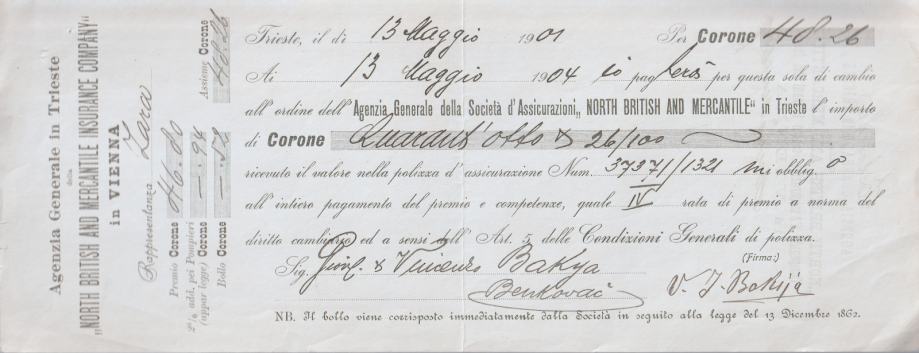 Agenzia Generale in Trieste
della
„NORTH BRITISH AND MERCANTILE INSURANCE COMPANY"
in VIENNA
Rappresentanza Zara
Premio Corone 46.80
2% add. pei Pompieri (appar legge) Corone —.94
Bollo Corone —.52
Assieme Corone 48.26
Trieste, il dì 13 Maggio 1901 Per Corone 48.26
Ai 13 Maggio 1904 io pagherò per questa sola di cambio
all'ordine dell'Agenzia Generale della Società d'Assicurazioni „NORTH BRITISH AND MERCANTILE" in Trieste l'importo
di Corone Quarant'otto & 26/100
ricevuto il valore nella polizza d'assicurazione Num. 37371/1321 mi obbligo
all'intiero pagamento del premio e competenze, quale IV rata di premio a norma del
diritto cambiario ed a sensi dell' Art. 5 delle Condizioni Generali di polizza.
(Firma:)
Sig. & Vincenzo Bakija
Benkovac V. J. Bakija
NB. Il bollo viene corrisposto immediatamente dalla Società in seguito alla legge del 13 Dicembre 1862.